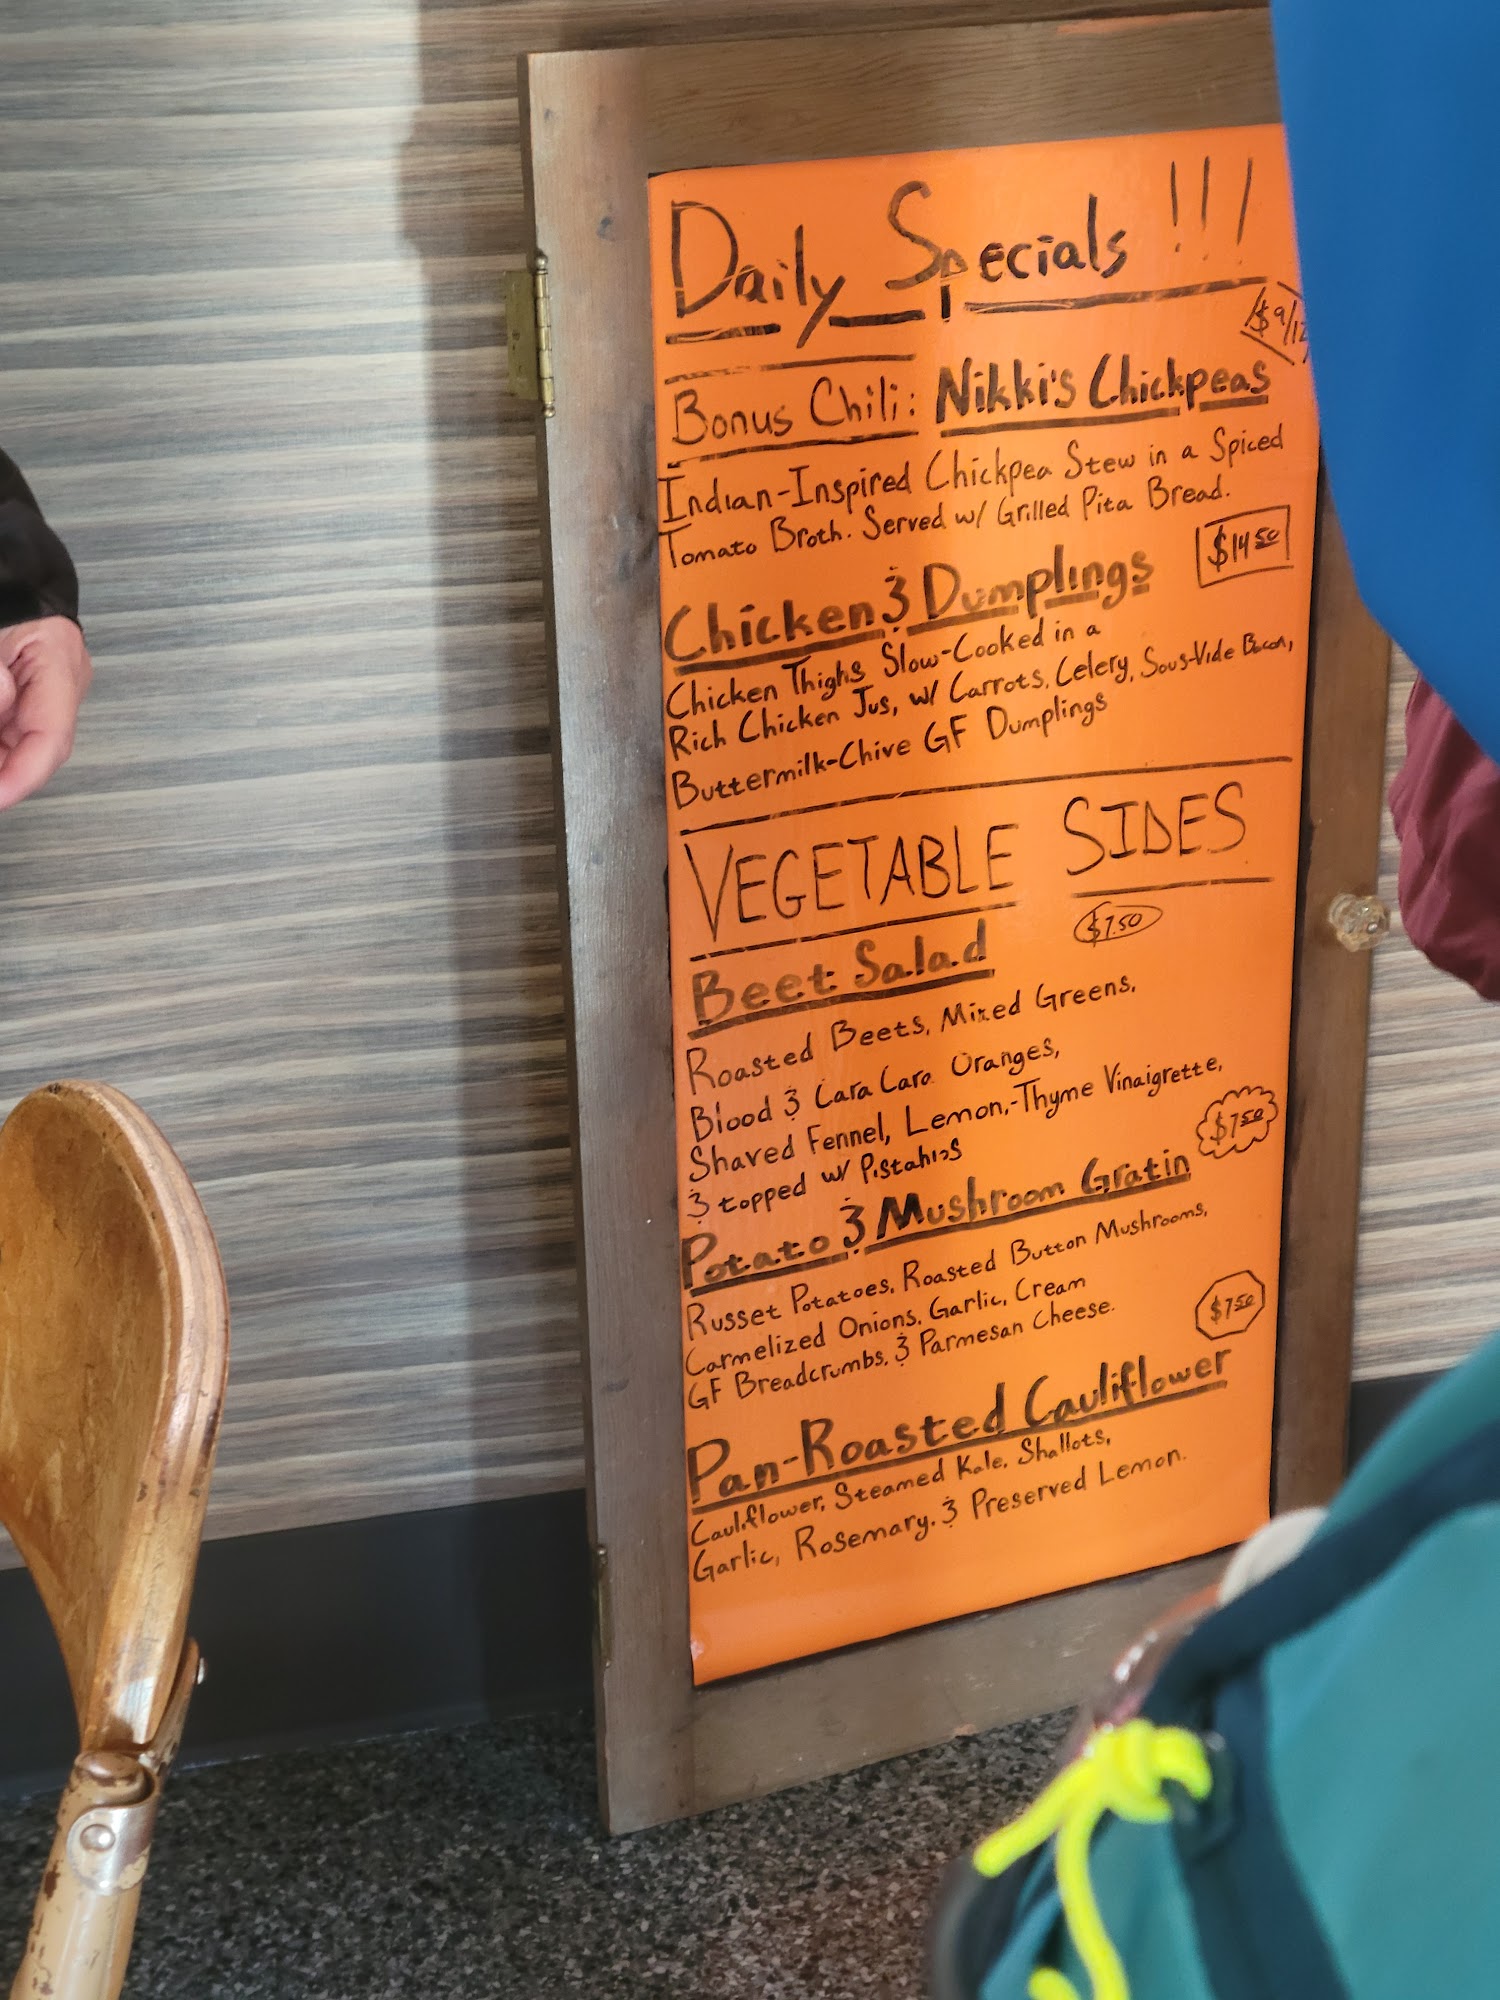 Daily Specials !!!
$9/12
Bonus Chili: Nikki's Chickpeas
Indian-Inspired Chickpea Stew in a Spiced
Tomato Broth. Served w/ Grilled Pita Bread.
$14 50
Chicken & Dumplings
Chicken Thighs Slow-Cooked in a
Rich Chicken Jus, w/ Carrots, Celery, Sous-Vide Bacon,
Buttermilk-Chive GF Dumplings
VEGETABLE SIDES
$7.50
Beet Salad
Roasted Beets, Mixed Greens,
Blood & Cara Cara Oranges,
Shaved Fennel, Lemon,-Thyme Vinaigrette,
& topped w/ Pistahios
$7 50
Potato & Mushroom Gratin
Russet Potatoes, Roasted Button Mushrooms,
Carmelized Onions, Garlic, Cream
GF Breadcrumbs, & Parmesan Cheese.
$7 50
Pan-Roasted Cauliflower
Cauliflower, Steamed Kale, Shallots,
Garlic, Rosemary, & Preserved Lemon.